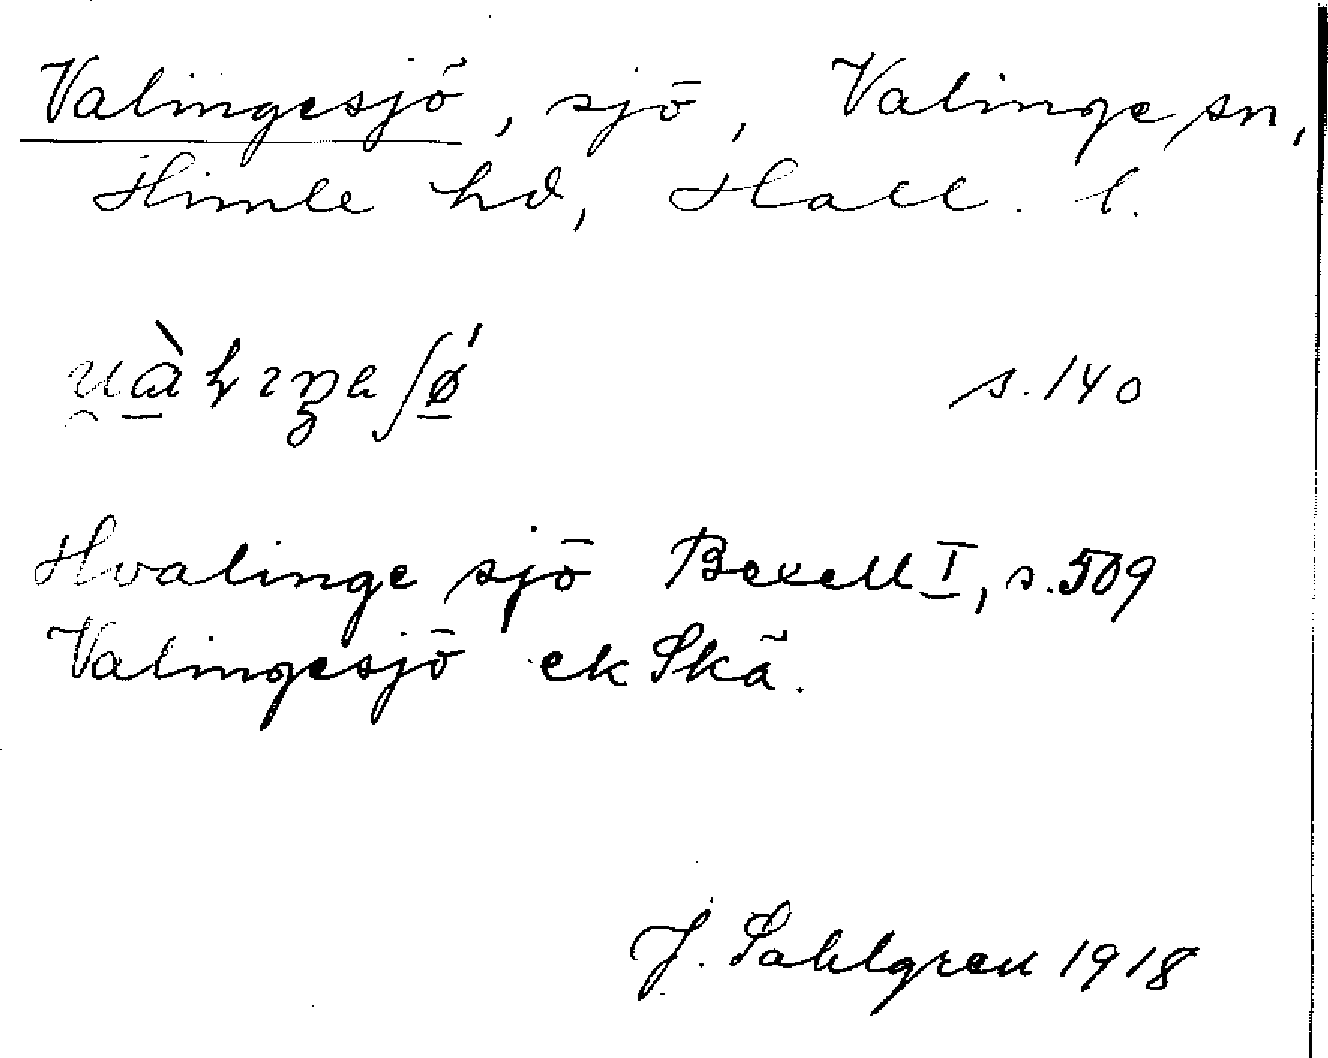 Valingesjö, sjö, Valinge sn,
Himle hd, Hall. l.
s. 140
Hvalinge sjö Bexell I, s. 509
Valingesjö ek Skä.
J. Sahlgren 1918